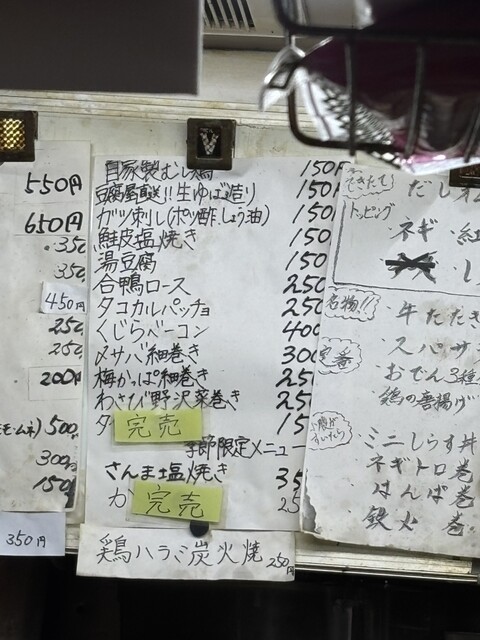 550円
650円
350
350
450円
250
250
200円
500
300
150
350円
自家製むし鶏 150円
豆腐屋直送!!生ゆば造り 150
ガツ刺し(ポン酢、しょう油) 150
鮭皮塩焼き 150
湯豆腐 150
合鴨ロース 250
タコカルパッチョ 250
くじらベーコン 400
〆サバ細巻き 300
梅かっぱ細巻き 250
わさび野沢菜巻き 250
タ 完売 15
季節限定メニュー
さんま塩焼き 35
か 完売 25
鶏ハラミ炭火焼 250円
できたて だし
トッピング
ネギ・紅
し
名物!! 牛たたき
定番 スパサラ
おでん3種
鶏の唐揚げ
ミニしらす丼
ネギトロ巻
はんぱ巻
鉄火巻